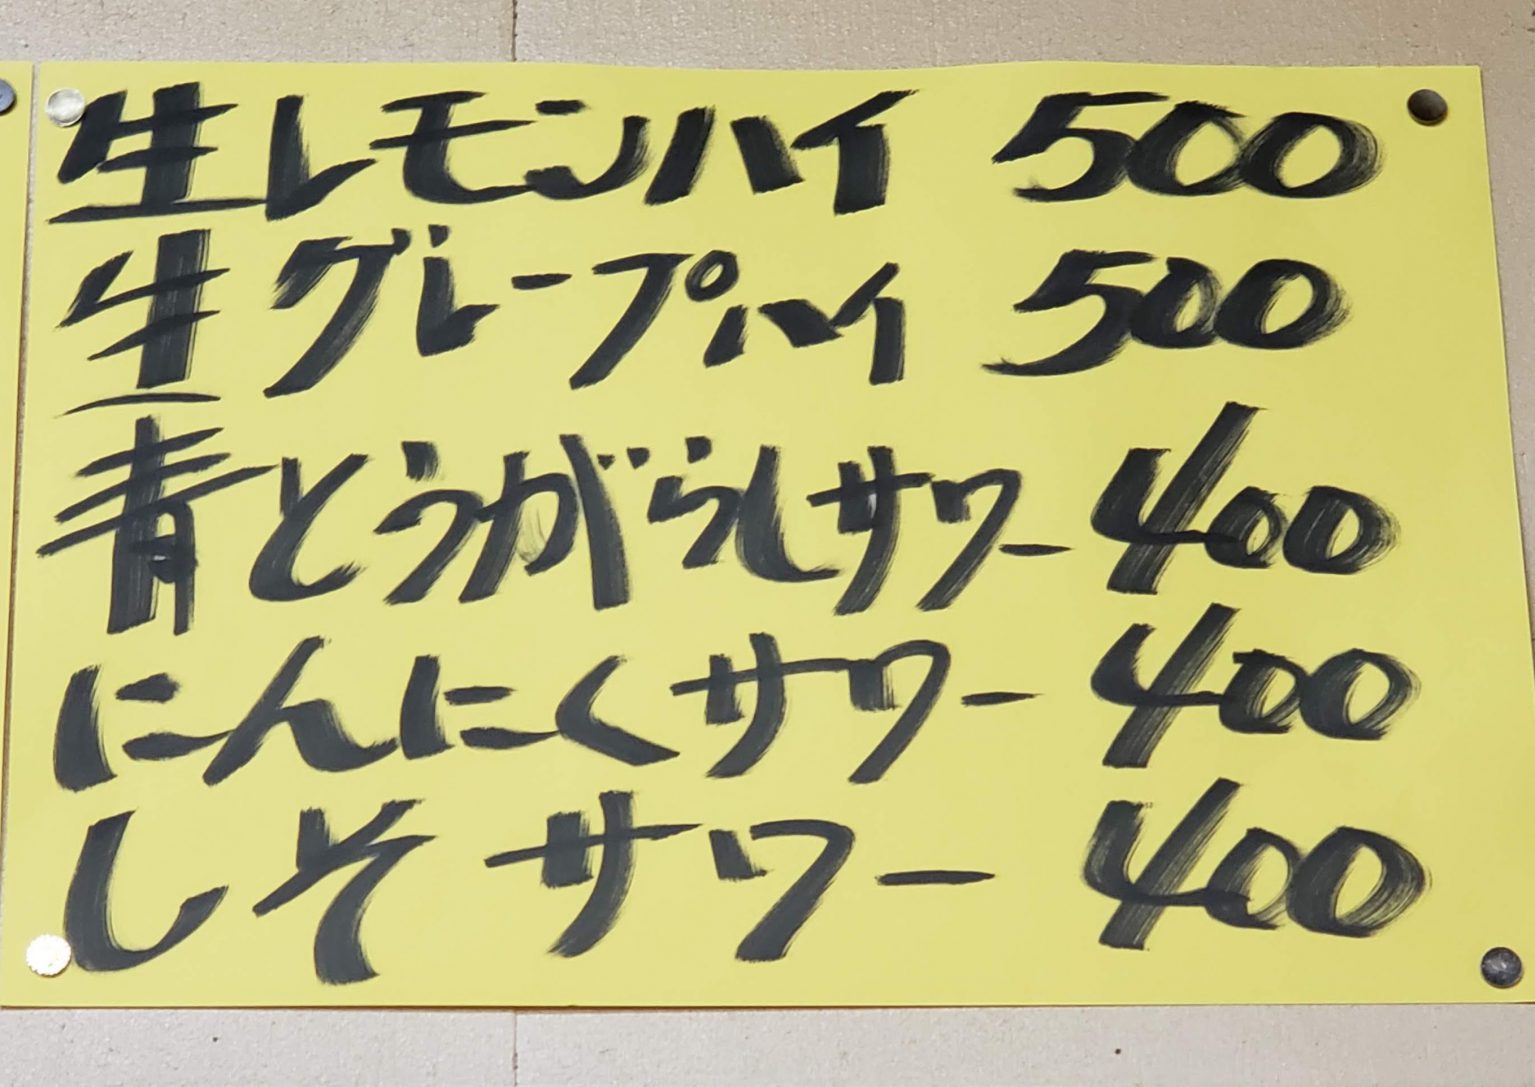 生レモンハイ 500
生グレープハイ 500
青とうがらしサワー 400
にんにくサワー 400
しそサワー 400